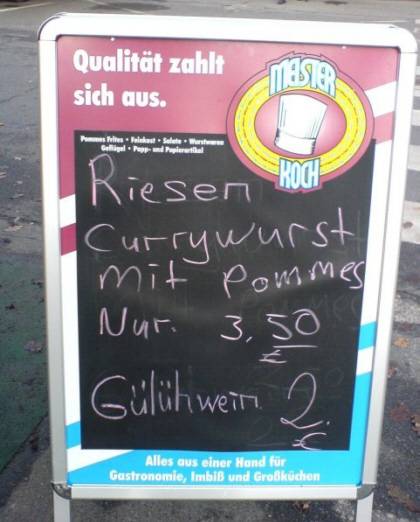 Qualität zahlt
sich aus.
MEISTER
KOCH
Pommes Frites • Feinkost • Salate • Wurstwaren
Geflügel • Papp- und Papierartikel
Riesen
Currywurst
mit Pommes
Nur. 3,50
€
Gülühwein 2.
€
Alles aus einer Hand für
Gastronomie, Imbiß und Großküchen